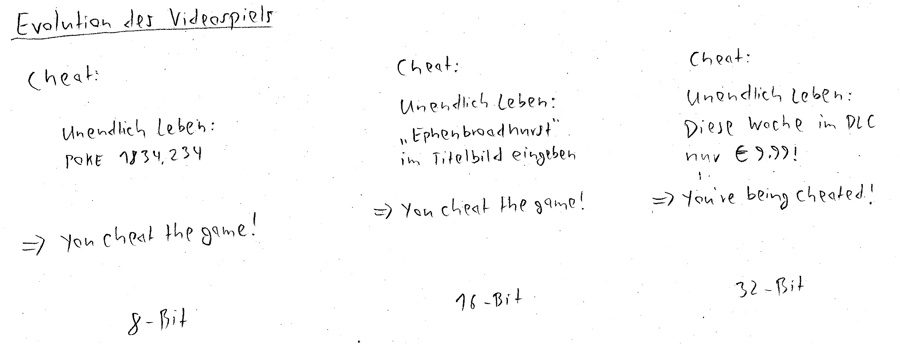 Evolution des Videospiels
Cheat:
Unendlich Leben:
POKE 1834,234
=> You cheat the game!
8-Bit
Cheat:
Unendlich Leben:
„Ephenbroadhurst"
im Titelbild eingeben
=> You cheat the game!
16-Bit
Cheat:
Unendlich Leben:
Diese Woche im DLC
nur € 9.99!
=> You're being cheated!
32-Bit